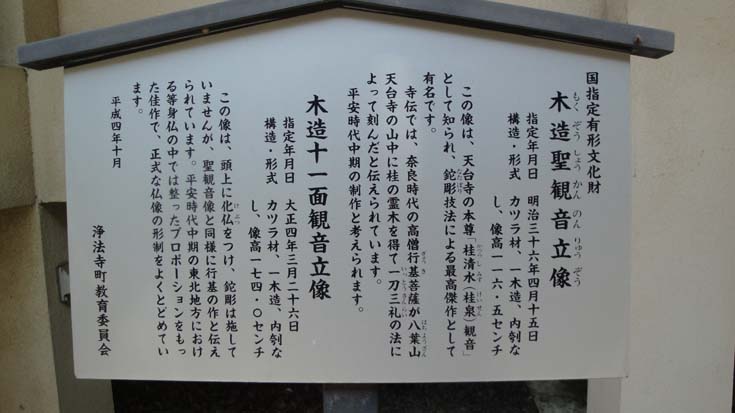 国指定有形文化財
木造聖観音立像
もくぞうしょうかんのんりゅうぞう
指定年月日　明治三十六年四月十五日
構造・形式　カツラ材、一木造、内刳な
し、像高一一六・五センチ
この像は、天台寺の本尊「桂清水（桂泉）観音」
かつらしみず　けいせん
として知られ、鉈彫技法による最高傑作として
なたぼり
有名です。
寺伝では、奈良時代の高僧行基菩薩が八葉山
ぎょうき　はちようざん
天台寺の山中に桂の霊木を得て一刀三礼の法に
いっとうさんらい
よって刻んだと伝えられています。
平安時代中期の制作と考えられます。
木造十一面観音立像
指定年月日　大正四年三月二十六日
構造・形式　カツラ材、一木造、内刳な
し、像高一七四・〇センチ
この像は、頭上に化仏をつけ、鉈彫は施して
けぶつ
いませんが、聖観音像と同様に行基の作と伝え
られています。平安時代中期の東北地方におけ
る等身仏の中では整ったプロポーションをもっ
た佳作で、正式な仏像の形制をよくとどめてい
ます。
平成四年十月
浄法寺町教育委員会